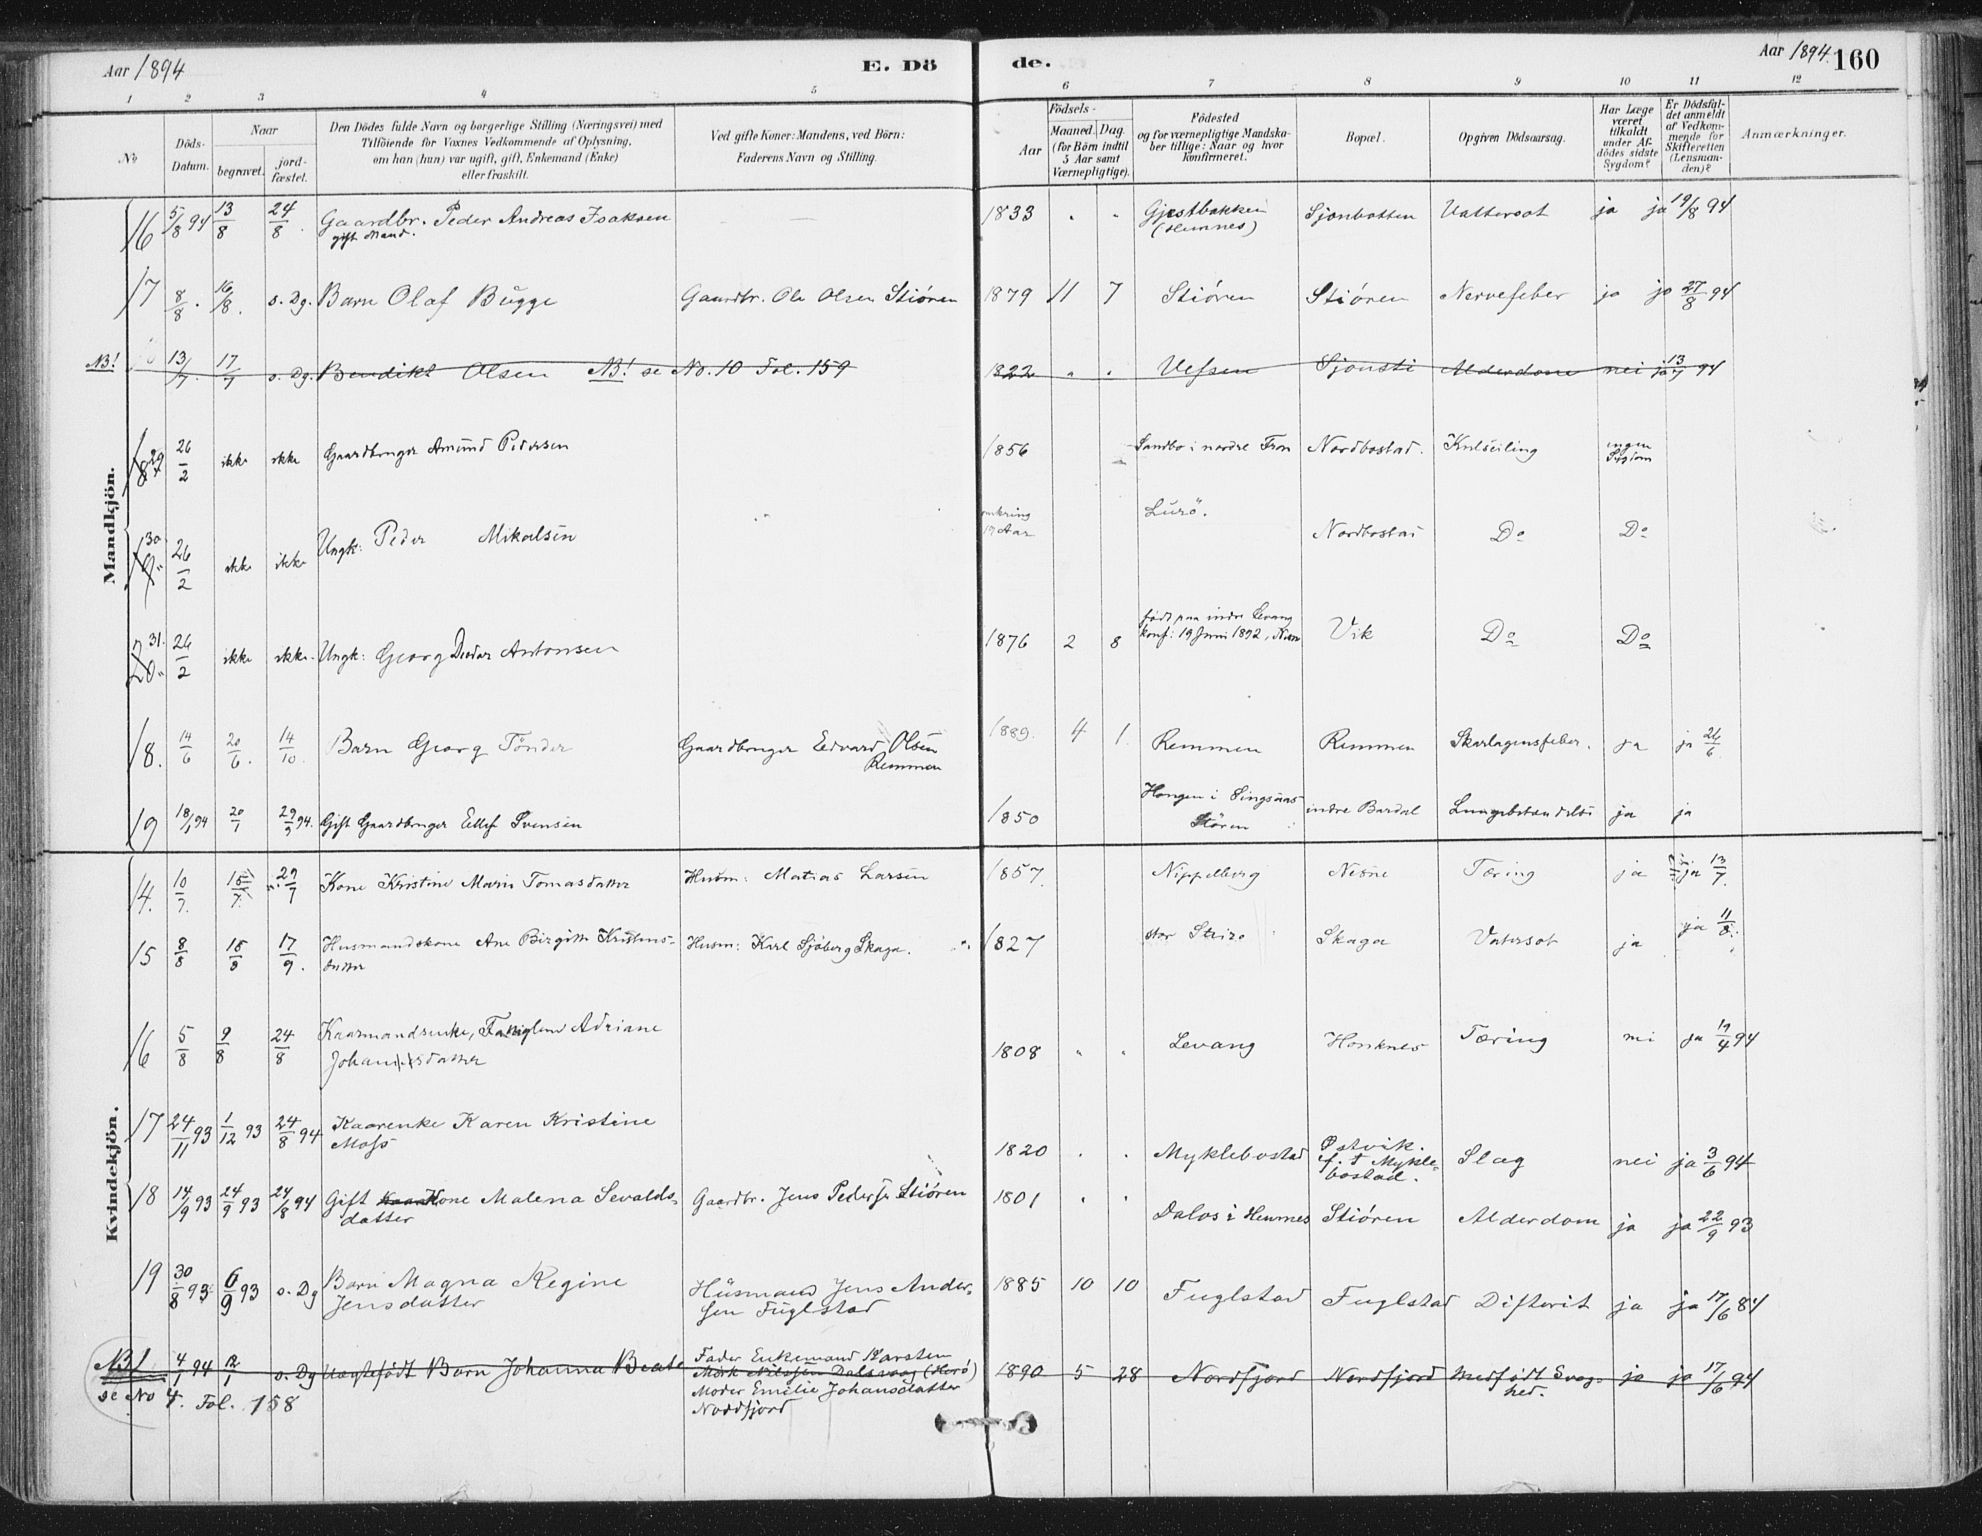 Aar 1894
E. Dö
de.
Aar 1894.
160
1 2 3 4 5 6 7 8 9 10 11 12
No
Döds-Datum.
Naar
begravet.
jord-fæstet.
Den Dödes fulde Navn og borgerlige Stilling (Næringsvei) med
Tilföiende for Voxnes Vedkommende af Oplysning,
om han (hun) var ugift, gift, Enkemand (Enke)
eller fraskilt.
Ved gifte Koner: Mandens, ved Börn:
Faderens Navn og Stilling.
Födsels-
Aar
Maaned. Dag.
(for Börn indtil
5 Aar samt
Værnepligtige).
Födested
og for værnepligtige Mandska-
ber tillige: Naar og hvor
konfirmeret.
Bopæl.
Opgiven Dödsaarsag.
Har Læge
været
tilkaldt
under Af-
dödes sidste
Sygdom?
Er Dödsfal-
det anmeldt
af Vedkom-
mende for
Skifteretten
(Lensman-
den)?
Anmærkninger.
Mandkjön.
16 5/8 94 13/8 24/8. Gaardbr. Peder Andreas Isaksen 1833 " " Gjestbakken Sjonbotten Vattersot ja ja 19/8 94
gift Mand. (Hemnes)
17 8/8. 16/8. s. Dg. Barn Olaf Bugge Gaardbr. Ole Olsen Stiøren 1879 11 7 Stiøren Stiøren Nervefeber ja ja 27/8 94
NB! 13/7. 17/7 s. Dg. Bendikt Olsen NB! se No. 10 Fol. 159 1822 " " Vefsen Sjonsti Alderdom nei ja 13/7 94
29 26/2 ikke ikke Gaardbruger Amund Pedersen 1856 Sandbo i nordre Fron Nordbostad. Kulseiling ingen Sygdom
30 26/2 ikke ikke Ungk: Peder Mikalsen omkring 19 Aar Lurö. Nordbostad Do Do
31. 26/2 ikke ikke. Ungk: Georg Peder Antonsen 1876 2 8 født paa indre Levang
konf: 19 Juni 1892, Vik Do Do
18. 14/6 20/6. 14/10 Barn Georg Tönder Gaardbruger Edvard Olsen 1889. 4 1. Remmen Remmen Skarlagensfeber. ja ja 26/6
Remmen
19 18/1 94 20/1 29/9 94. Gift Gaardbruger Ellef Svensen 1850 Hongen i Singsaas Stören indre Bardal Lungebetændelse ja ja
Kvindekjön.
14. 10/7. 15/7. 29/7 Kone Kristine Marie Tomasdatter Husm: Matias Larsen 1857. Nippelberg Nesne Tæring ja ja 13/7.
15 8/8 15/8 17/9. Husmandskone Ane Birgitte Kristens- Husm: Karl Sjöberg Skaga. 1827 Skaga Vatersot ja ja 11/8.
datter
16 5/8 9/8 24/8 Kaarmandsenke, Adriane 1808 " " Levang Honknes Tæring ja 94
Johan datter
17 24/11 93 1/12 93 24/8 94 Kaarenke Karen Kristine 1820 . . Myklebostad Østvik. Slag nei ja 3/6 94
Moss f. t. Mykle-
bostad.
18 14/9 93 24/9 93 24/8 94 Gift Kone Malena Sevalds- Gaardbr. Jens Peders. Stiören 1801 " " Dalos i Hemnes Stiören Alderdom ja ja 22/9 93
datter
19 30/8 93 6/9 93 s. Dg Barn Magna Regine Husmand Jens Ander- 1885 10 10 Fuglstad Fuglstad Difterit ja ja 17/6 84
Jensdatter sen Fuglstad
NB! 4/1 94 12/1 s. Dg Uægtefödt Barn Johanna Beate Fader Enkemand Karsten 1890 5 28 Nordfjord Nordfjord Medfødt Svag- ja ja 17/6 94
Mørk Nilssen Dalsvaag (Herö) hed.
se No 4. Fol. 158 Moder Emelie Johansdatter
Nordfjord